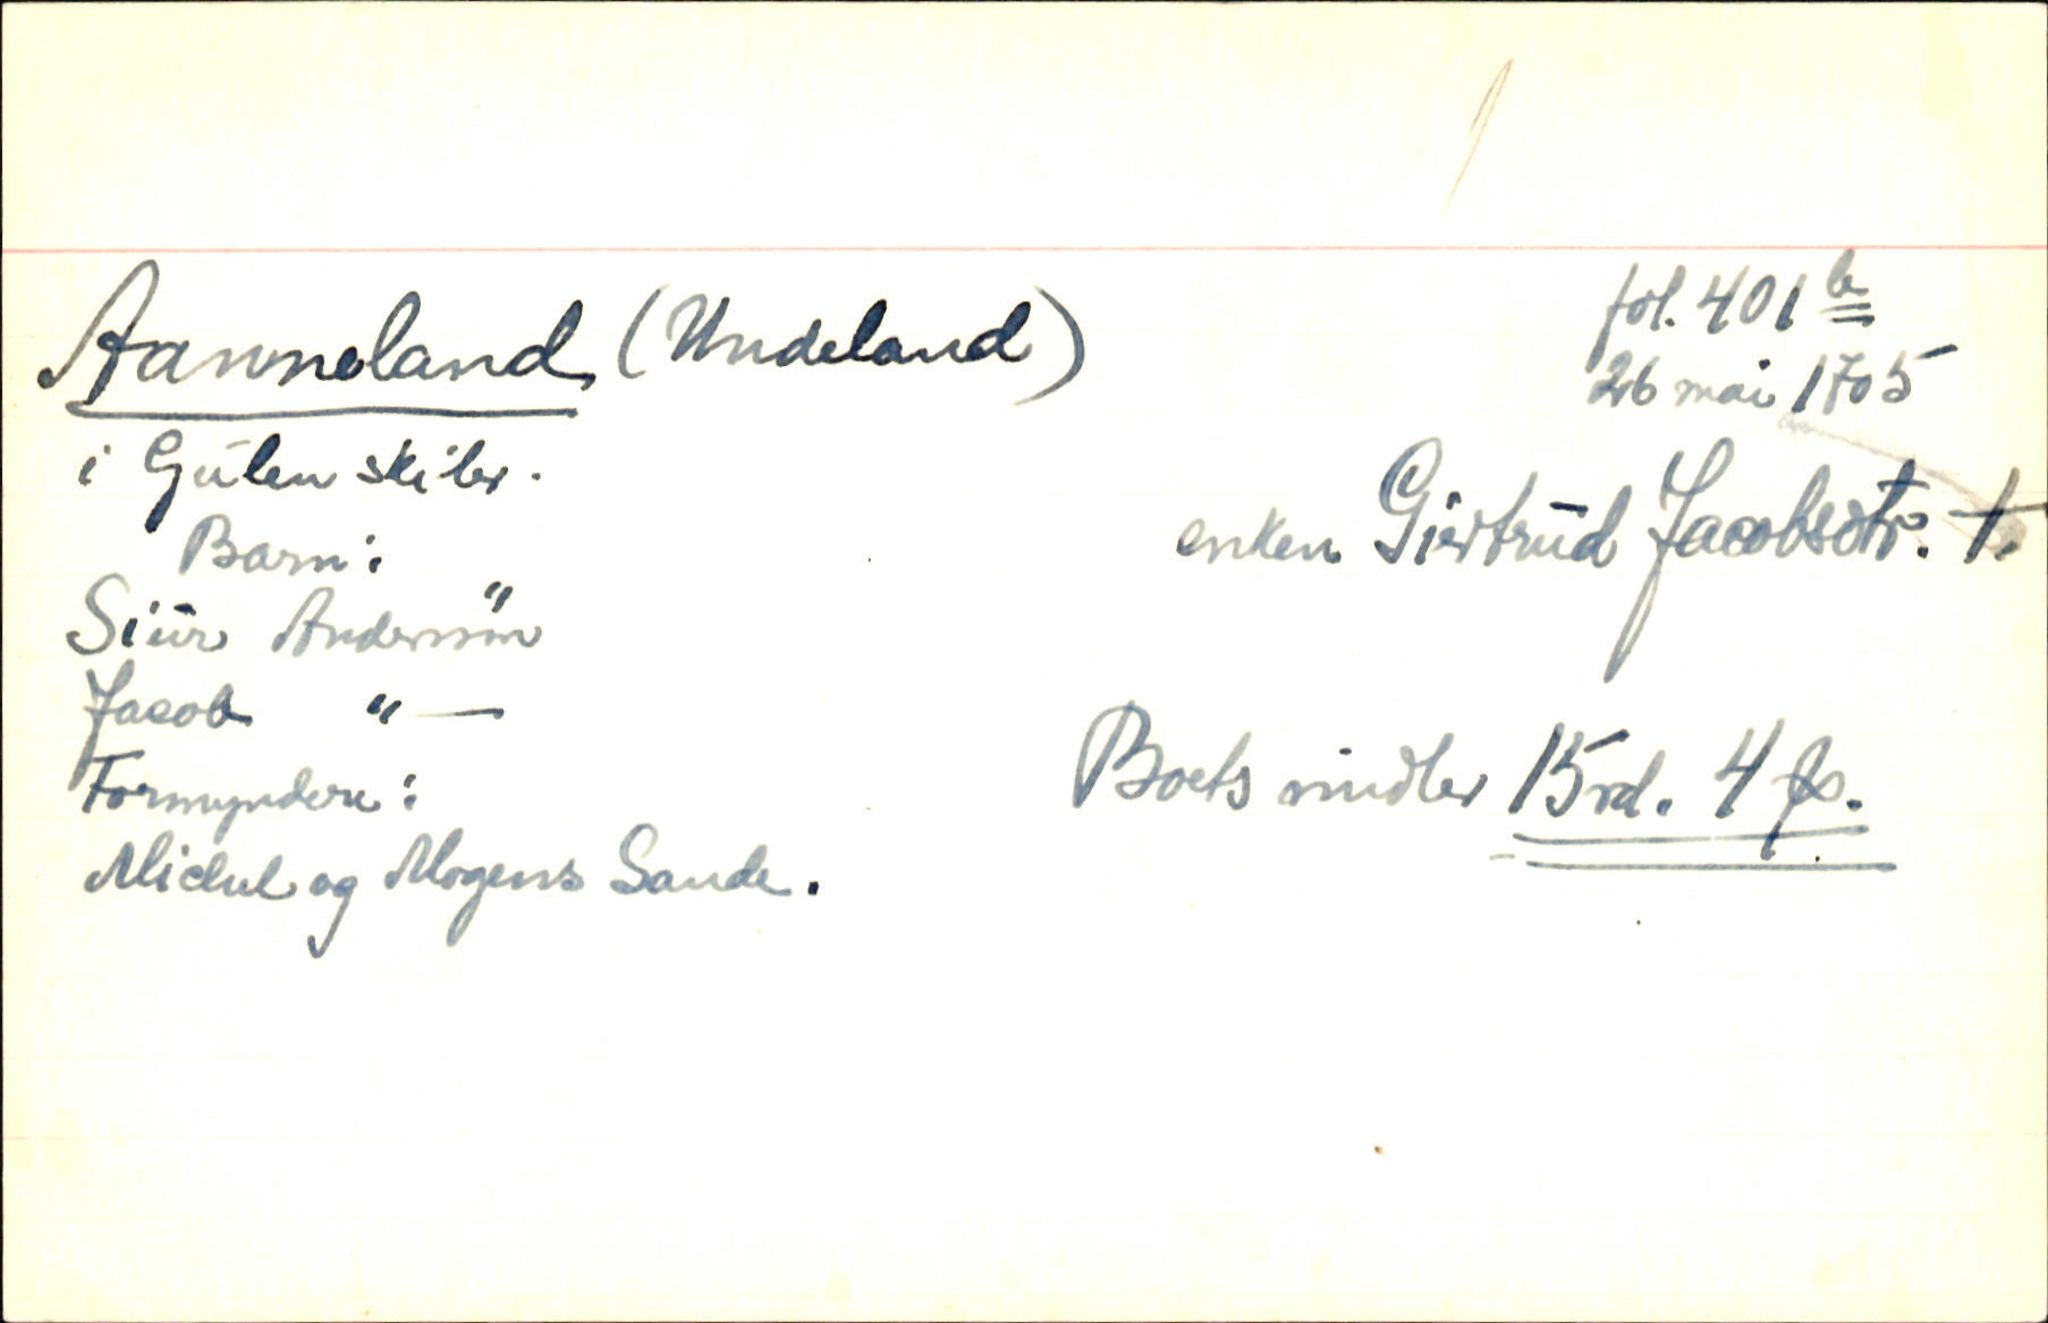 Aanneland (Undeland)
fol. 401 b
26 mai 1705
i Gulen skibr.
enken Giertrud Jacobsdtr. †.
Barn:
Siur Andersøn
Jacob "—
Boets midler 15 rd. 4 ß.
Formyndere:
Michel og Mogens Sande.